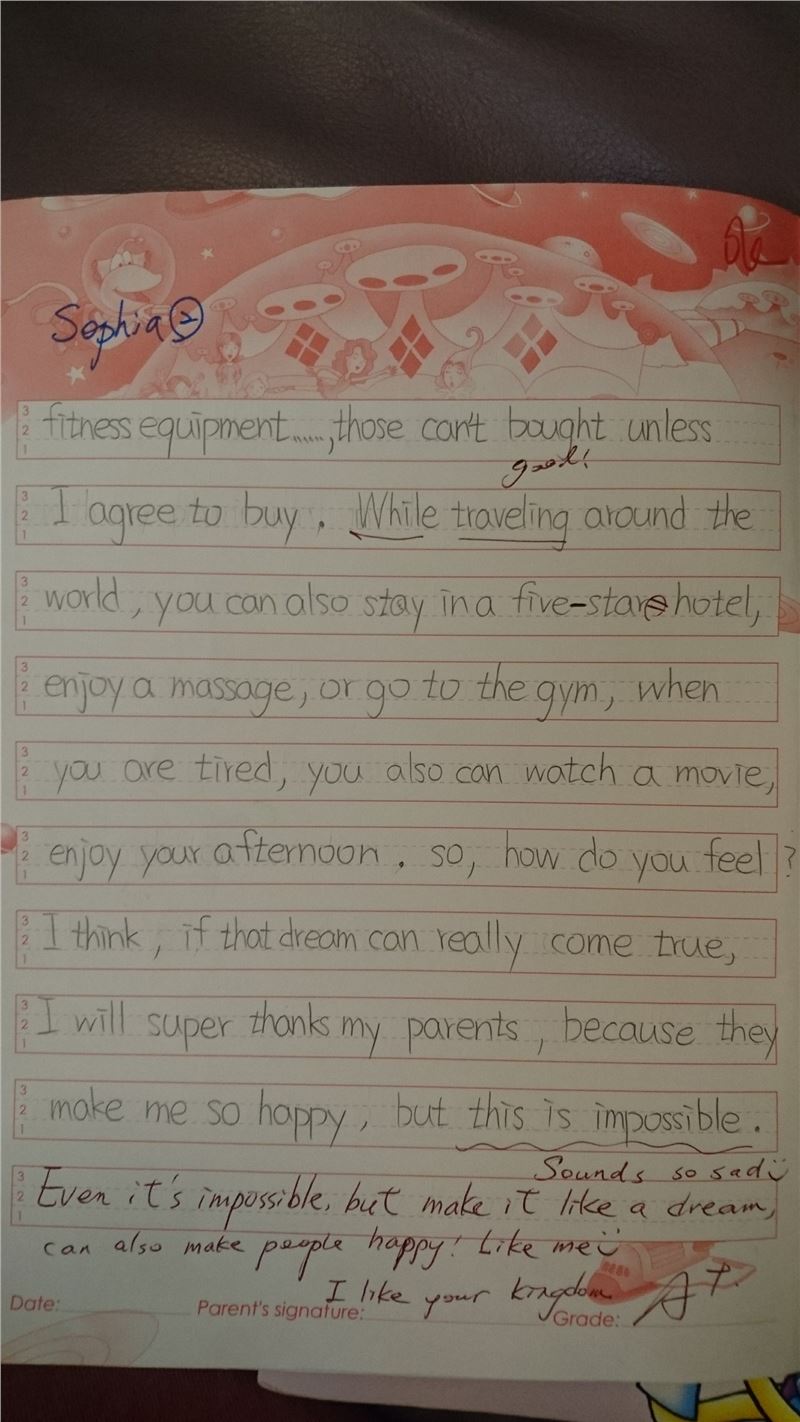 Sophia ②
3 2 1 fitness equipment......,those can't bought unless
good!
3 2 1 I agree to buy . While traveling around the
3 2 1 world , you can also stay in a five-star hotel,
3 2 1 enjoy a massage, or go to the gym, when
3 2 1 you are tired, you also can watch a movie,
3 2 1 enjoy your afternoon . so, how do you feel ?
3 2 1 I think , if that dream can really come true,
3 2 1 I will super thanks my parents , because they
3 2 1 make me so happy , but this is impossible .
Sounds so sad
3 2 1 Even it's impossible, but make it like a dream,
can also make people happy! Like me
I like your kingdom
Date: Parent's signature: Grade: A+.